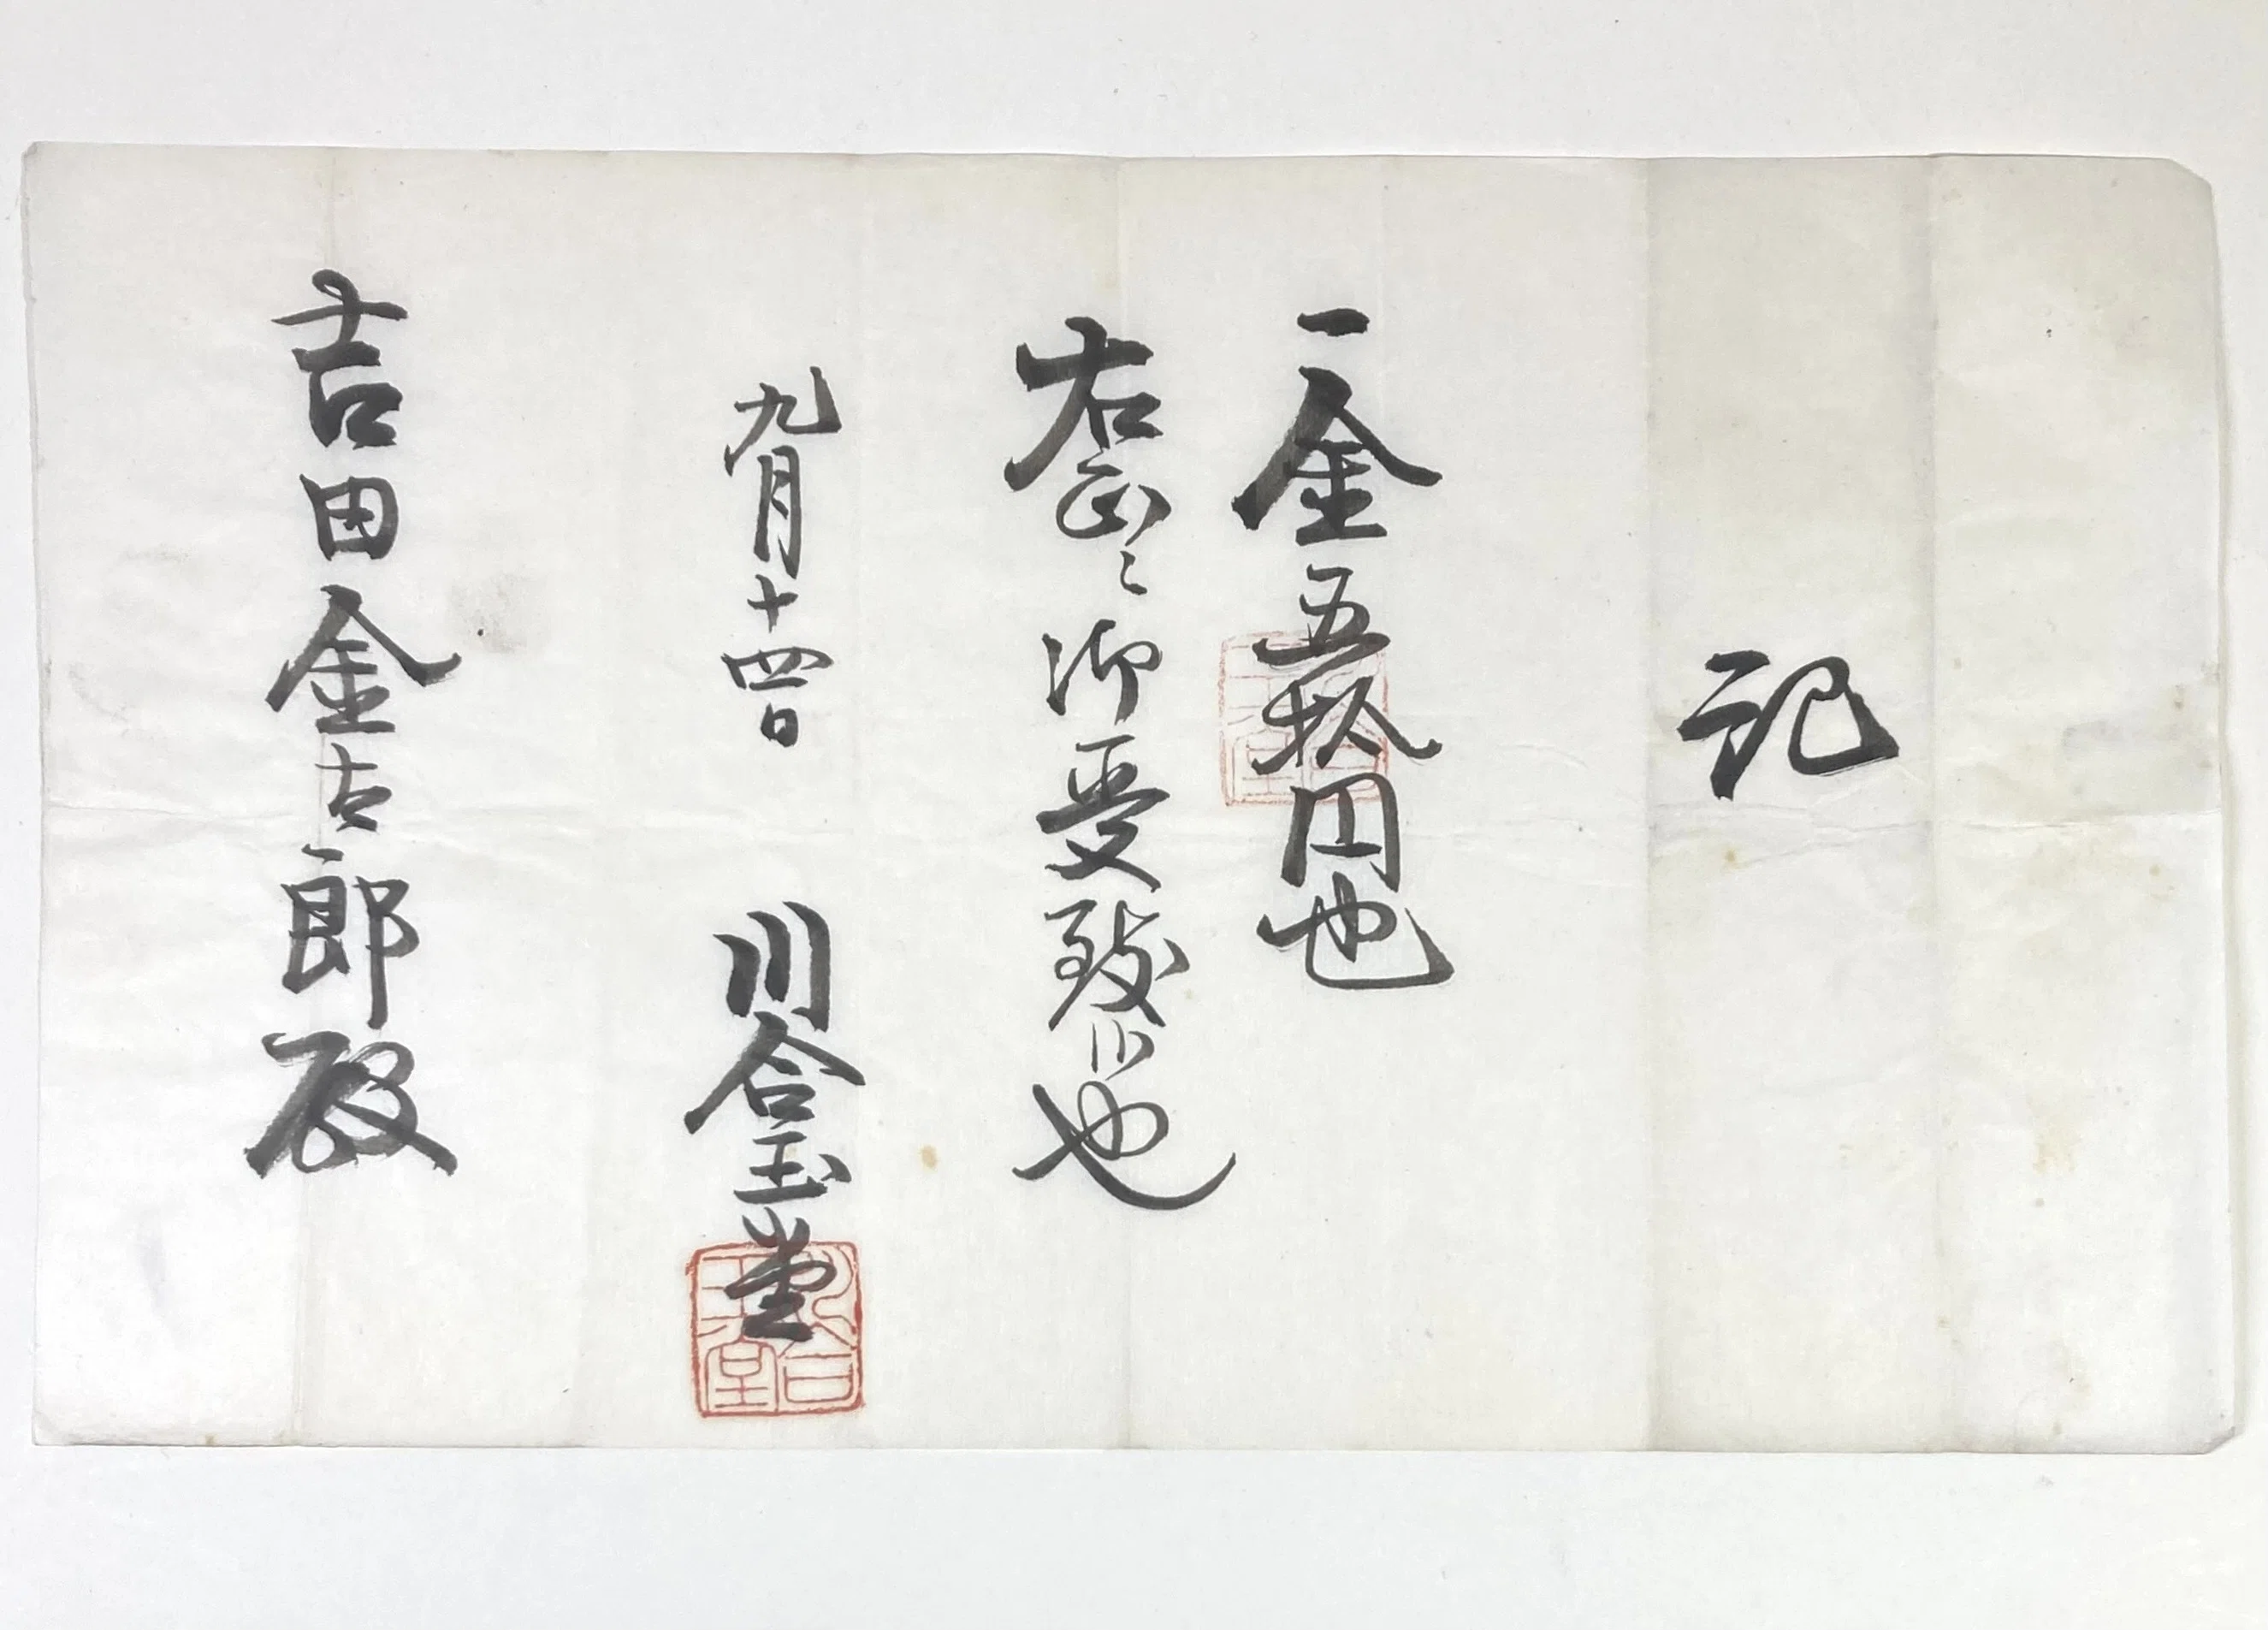 記
一金五拾円也
右正ニ御受致候也
九月十四日 川合玉堂
吉田金吉郎殿
川合玉堂